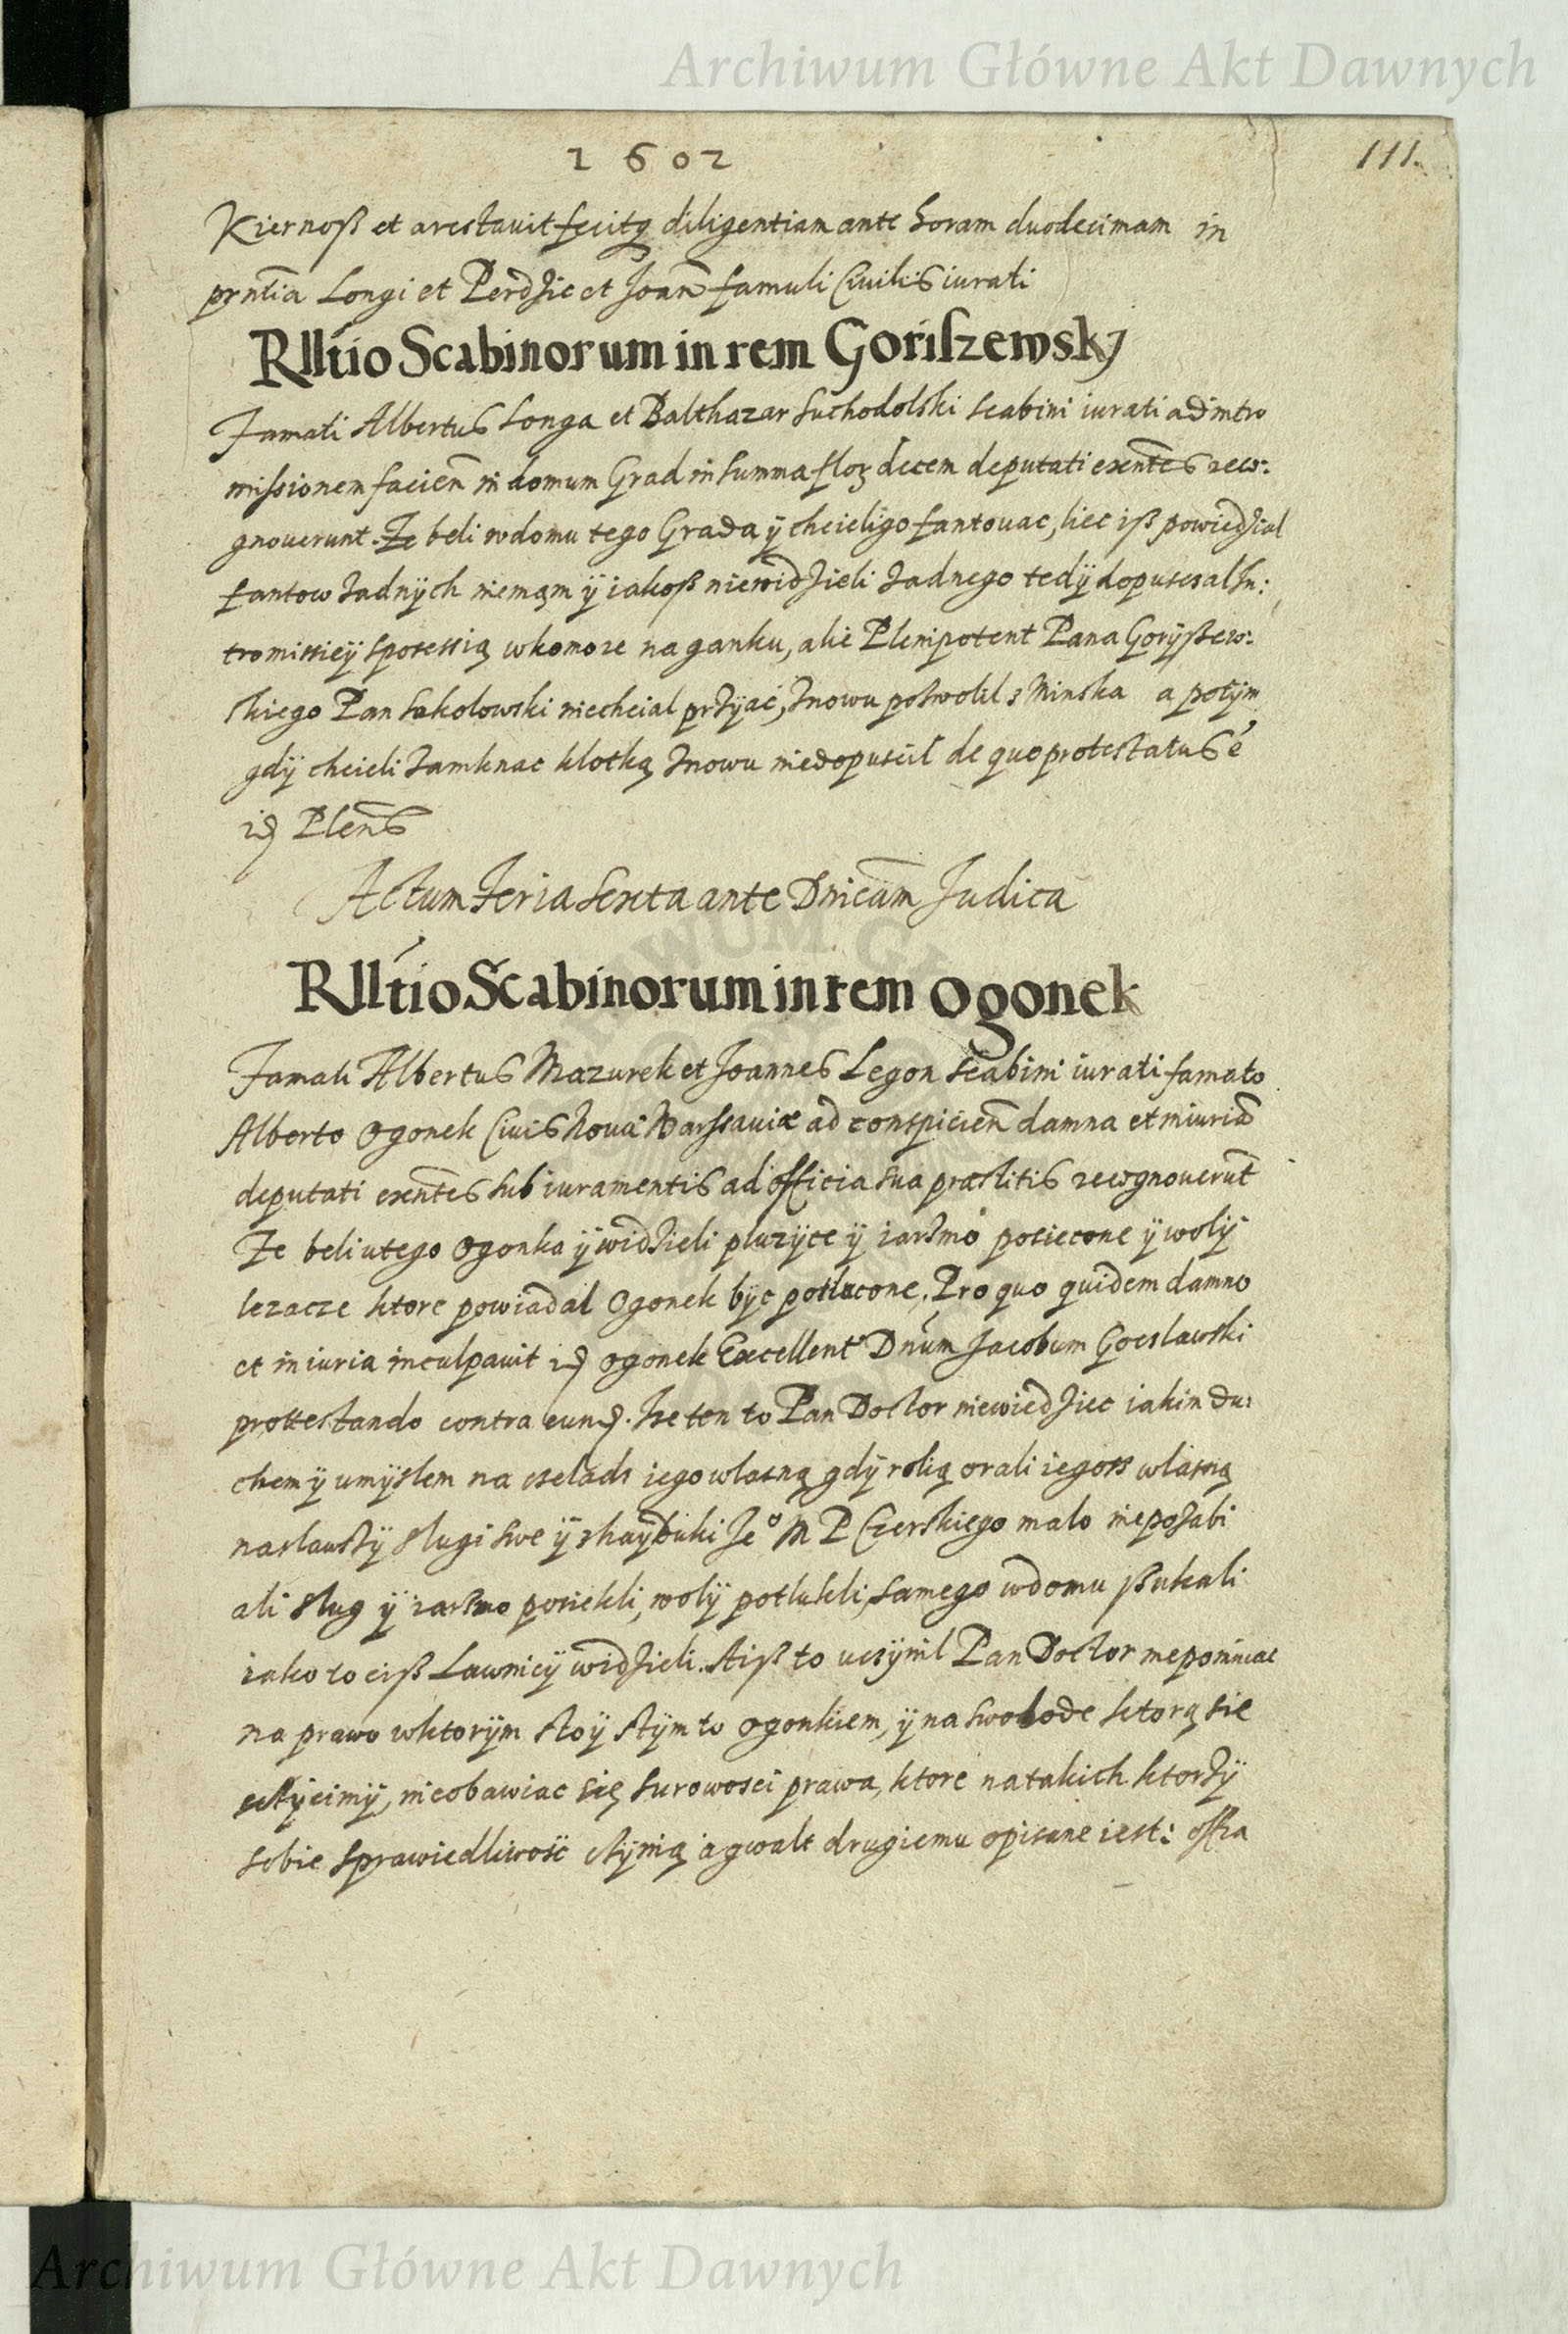 Archiwum Główne Akt Dawnych
1602
111.
Kiernoß et arestauit fecitq diligentiam ante horam duodecimam in
prntia Longi et Perdzic et Joan famuli Ciuilis iurati
Rlltio Scabinorum in rem Goriszewskj
Famati Albertus Longa et Balthazar Suchodolski scabini iurati ad intro
missionem facien in domum Grad in summa floz decem deputati exentes reco:
gnouerunt. Ze beli wdomu tego Grada ÿ chcieligo fantouac, liec iß powiedzial
fantow zadnÿch niemąm ÿ iakoß niewidzieli zadnego tedÿ dopuscsal In:
tromissieÿ sposessią wkomore na ganku, alie Plenipotent Pana Gorÿßew:
skiego Pan Sakolowski niechcial przÿać, znowu poswolil s Minska a potÿm
gdÿ chcieli zamknac klotką znowu niedopuscil de quo protestatus e
id Plens
Actum Feria Sexta ante Dnicam Judica
Rlltio Scabinorum in rem Ogonek
Famati Albertus Mazurek et Joannes Legon scabini iurati famato
Alberto Ogonek Ciuis Noua Warssauiæ ad conspicien damna et iniuria
deputati exentes sub iuramentis ad officia sua præstitis recognouerut
Ze beli utego Ogonka ÿ widzieli pluzÿce ÿ iarzmo posiecone ÿ wolÿ
lezacze ktore powiadal Ogonek bÿc potlucone. Pro quo quidem damno
et iniuria inculpauit id Ogonek Excellent Dnum Jacobum Gocslawski
prottestando contra eund. Ize ten to Pan Doctor niewiedziec iakim du:
chem ÿ umÿslem na cselads iego wlasną gdÿ rolią orali iegoss wlasną
naslauszÿ slugi swe ÿ shaÿduki Je° M P Czerskiego malo nie pozabi
ali slug ÿ iarzmo posiekli, wolÿ potlukli, samego wdomu ßukali
iako to ciß Lawnicÿ widzieli. Aiß to ucsÿnil Pan Doctor niepomniac
na prawo wktorÿm stoÿ stÿm to Ogonkiem, ÿ na swobode ktorą sie
sczÿcimÿ, nieobawiac się surowosci prawa, ktore na takich ktorzÿ
sobie sprawiedliwosc czÿnią a gwalt drugiemu opisane iest: offia
Archiwum Główne Akt Dawnych